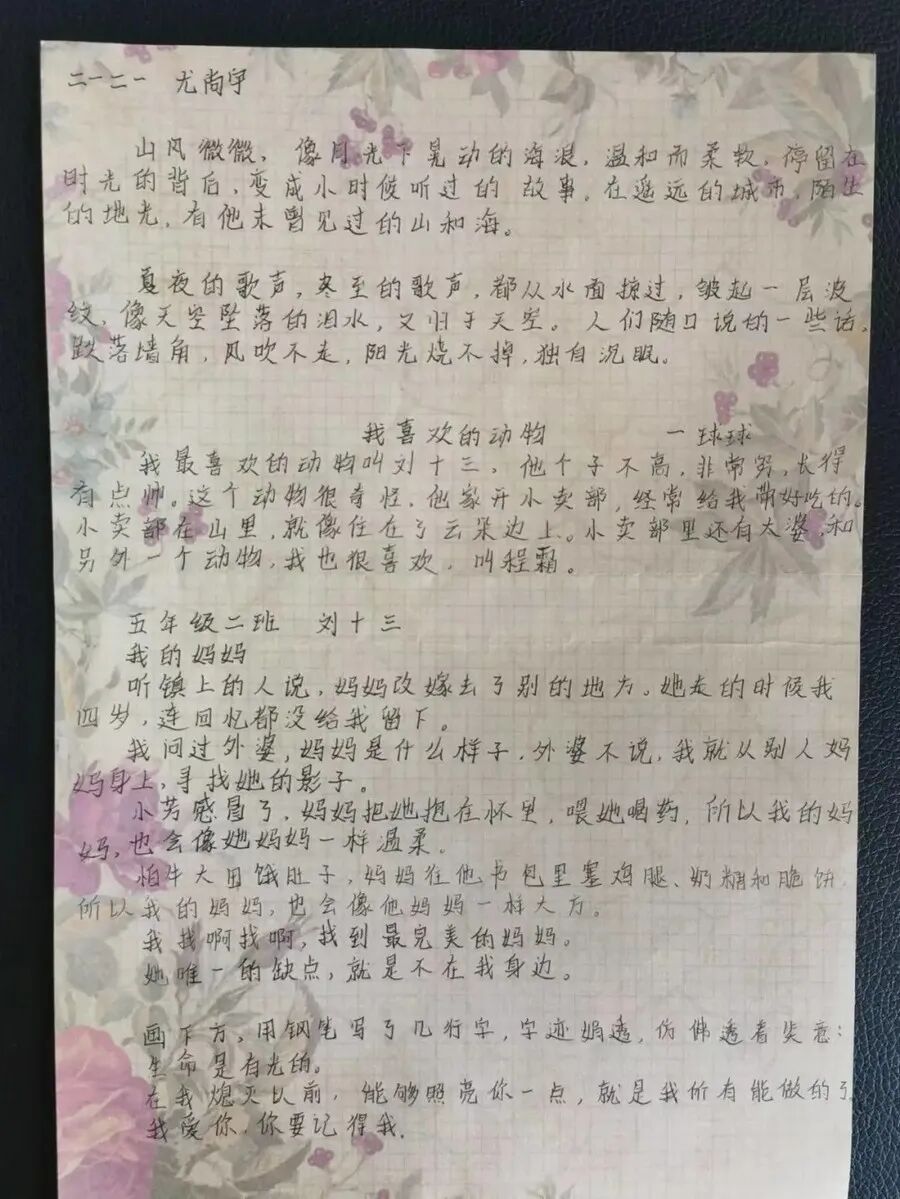 二一二一 尤尚宇
山风微微，像月光下晃动的海浪，温和而柔软，停留在
时光的背后，变成小时候听过的故事。在遥远的城市，陌生
的地光，有他未曾见过的山和海。
夏夜的歌声，冬至的歌声，都从水面掠过，皱起一层波
纹，像天空坠落的泪水，又归于天空。人们随口说的一些话，
跌落墙角，风吹不走，阳光烧不掉，独自沉眠。
我喜欢的动物 一球球
我最喜欢的动物叫刘十三，他个子不高，非常穷，长得
有点帅。这个动物很奇怪，他家开小卖部，经常给我带好吃的。
小卖部在山里，就像住在了云朵边上。小卖部里还有太婆，和
另外一个动物，我也很喜欢，叫程霜。
五年级二班 刘十三
我的妈妈
听镇上的人说，妈妈改嫁去了别的地方。她走的时候我
四岁，连回忆都没给我留下。
我问过外婆，妈妈是什么样子，外婆不说，我就从别人妈
妈身上，寻找她的影子。
小芳感冒了，妈妈把她抱在怀里，喂她喝药，所以我的妈
妈，也会像她妈妈一样温柔。
怕牛大田饿肚子，妈妈往他书包里塞鸡腿、奶糖和脆饼，
所以我的妈妈，也会像他妈妈一样大方。
我找啊找啊，找到最完美的妈妈。
她唯一的缺点，就是不在我身边。
画下方，用钢笔写了几行字，字迹娟透，仿佛透着笑意：
生命是有光的。
在我熄灭以前，能够照亮你一点，就是我所有能做的了
我爱你，你要记得我.